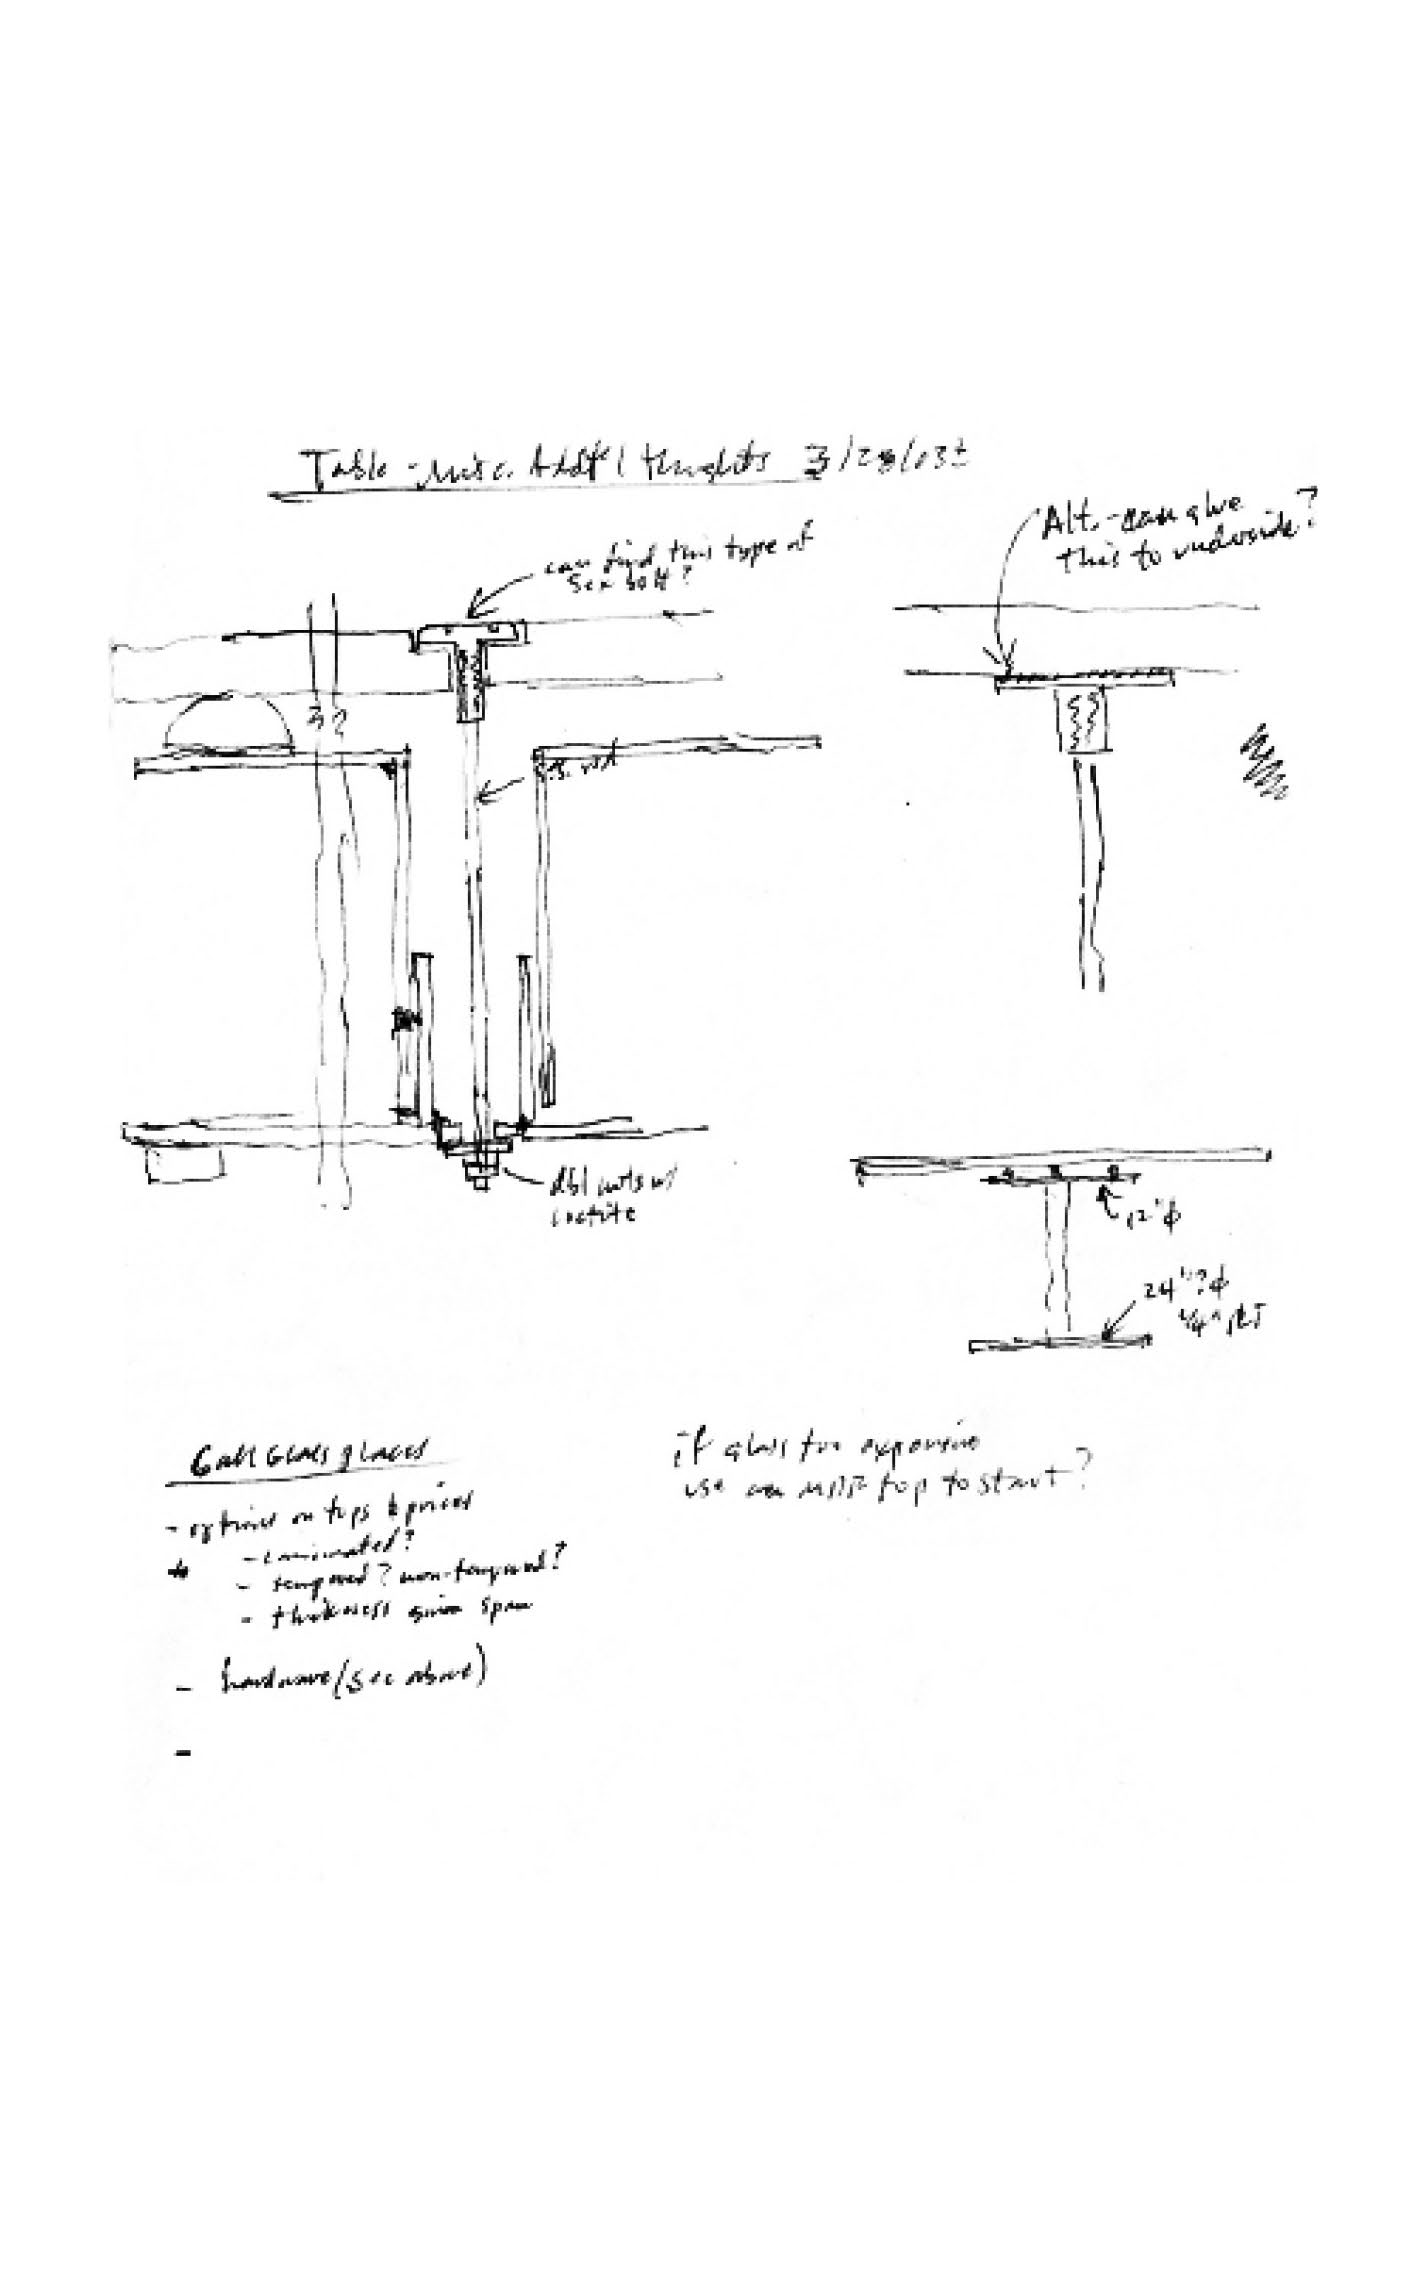 Table - misc. Addt'l thoughts 3/28/03±
can find this type of
sex bolt?
Alt. - can glue
this to underside?
S.S. rod
dbl nuts w/
loctite
12"φ
24"?φ
1/4"
Call Glass places
- options on tops & prices
- laminated?
- tempered? non-tempered?
- thickness given span
- hardware (see above)
-
if glass too expensive
use an MDF top to start?